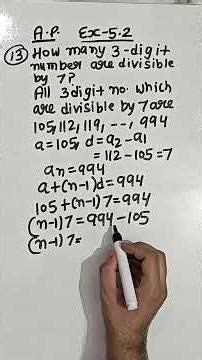 A.P. Ex-5.2
(13) How many 3-digit
number are divisible
by 7?
All 3digit no. which
are divisible by 7 are
105, 112, 119, ---, 994
a = 105, d = a2 - a1
= 112 - 105 = 7
an = 994
a + (n-1)d = 994
105 + (n-1)7 = 994
(n-1)7 = 994 - 105
(n-1)7 =